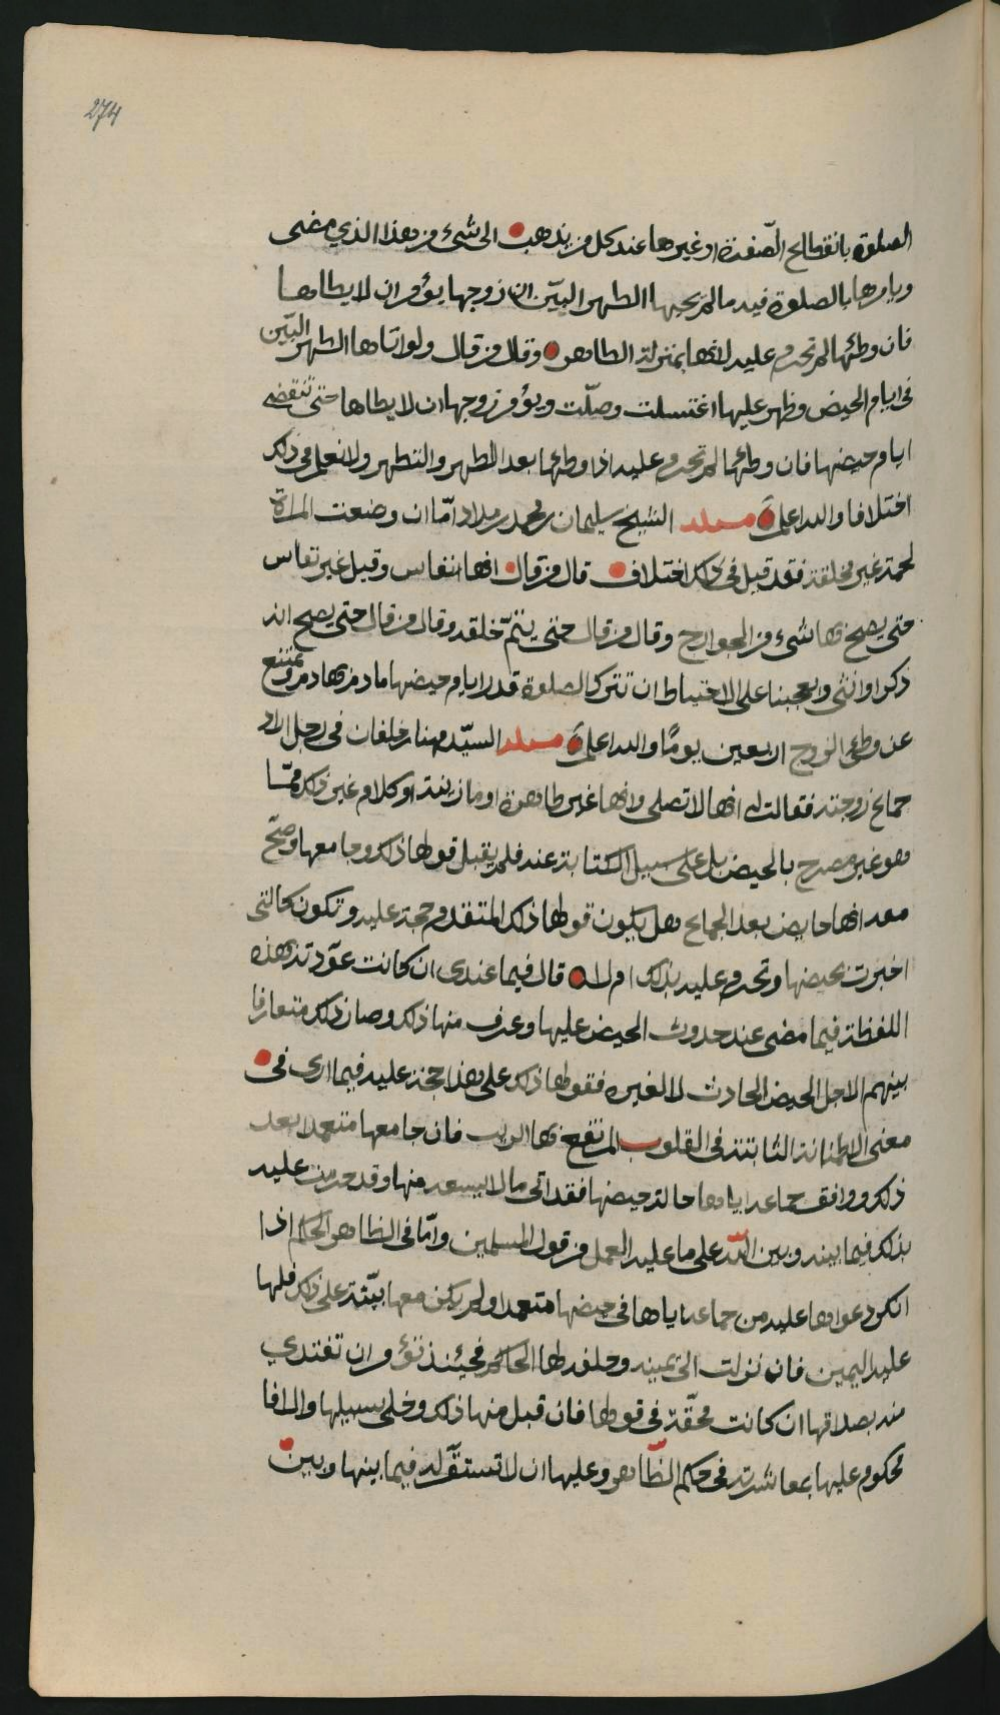 274
الصلوة بانقطاع الصفرة او غيرها عند كل من يذهب الى شيء من هذا الذي مضى
ويامرها بالصلوة فيه ما لم يجيها الطهر البيّن ان زوجها يؤمر ان لا يطاها
فان وطئها لم تحرم عليه لانها بمنزلة الطاهر وقال من قال ولو اتاها الطهر البيّن
في ايام الحيض وظهر عليها اغتسلت وصلّت ويؤمر زوجها ان لا يطاها حتى تنقضي
ايام حيضها فان وطئها لم تحرم عليه اذا وطئها بعد الطهر والتطهر ولا نعلم في ذلك
اختلافا والله اعلم مسئلة الشيخ سليمان بن محمد بن مداد امّا ان وضعت المراة
لحمة غير مخلقة فقد قيل في ذلك اختلاف قال من قال انها نفاس وقيل غير نفاس
حتى يصح فيها شيء من الجوارح وقال من قال حتى يتمّ خلقه وقال من قال حتى يصح انه
ذكر او انثى ويعجبنا على الاحتياط ان تترك الصلوة قدر ايام حيضها ما دم بها دم وتمتنع
عن وطئ الزوج اربعين يومًا والله اعلم مسئلة السيّد مهنا بن خلفان في رجل اراد
جماع زوجته فقالت له انها لا تصلي وانها غير طاهرة او ما زينة او كلام غير ذلك ممّا
هو غير مصرح بالحيض بل على سبيل الكتابة عنه فلم يقبل قولها ذلك وجامعها وصحّ
معه انها حايض بعد الجماع هل يكون قولها ذلك المتقدم حجة عليه وتكون كالتي
اخبرت بحيضها وتحرم عليه بذلك ام لا قال فيما عندي ان كانت عوّدته هذه
اللفظة فيما مضى عند حدوث الحيض عليها وعرف منها ذلك وصار ذلك متعارفا
بينهم لاجل الحيض الحادث لا لغيره فقولها ذلك على هذا حجة عليه فيما ارى في
معنى الاطمئنانة الثابتة في القلوب المرتفع بها الريب فان جامعها متعمدا بعد
ذلك ووافق جماعه اياها حالة حيضها فقد اتى ما لا يسعه منها وقد حرمت عليه
بذلك فيما بينه وبين اللّه على ما عليه العمل من قول المسلمين وامّا في الظاهر الحكم اذا
انكر دعواها عليه من جماعه اياها في حيضها متعمدا ولم يكن معها بيّنة على ذلك فلها
عليه اليمين فان نزلت الى يمينه وحلفه لها الحاكم فحيئنذ تؤمر ان تفتدي
منه بصداقها ان كانت محقّة في قولها فان قبل منها ذلك وخلى سبيلها والا فا
محكوم عليها بمعاشرته في حكم الظاهر وعليها ان لا تستقرّ له فيما بينها وبين